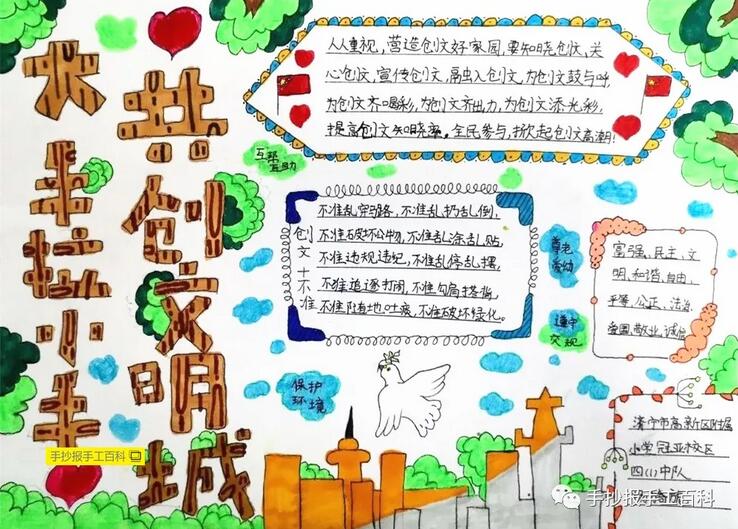 大手拉小手
共创文明城
人人重视，营造创文好家园，要知晓创文，关
心创文，宣传创文，融入创文，为创文鼓与呼
为创文齐喝彩，为创文齐出力，为创文添光彩，
提高创文知晓率，全民参与，掀起创文高潮！
互帮
互助
创文十不准
不准乱穿马路，不准乱扔乱倒，
不准破坏公物，不准乱涂乱贴，
不准违规违纪，不准乱停乱摆，
不准追逐打闹，不准勾肩搭背，
不准随地吐痰，不准破坏绿化。
尊老
爱幼
遵守
交规
富强、民主、文
明、和谐、自由、
平等、公正、法治、
爱国、敬业、诚信
保护
环境
济宁市高新区附属
小学冠亚校区
四(1)中队
手抄报手工百科
手抄报手工百科